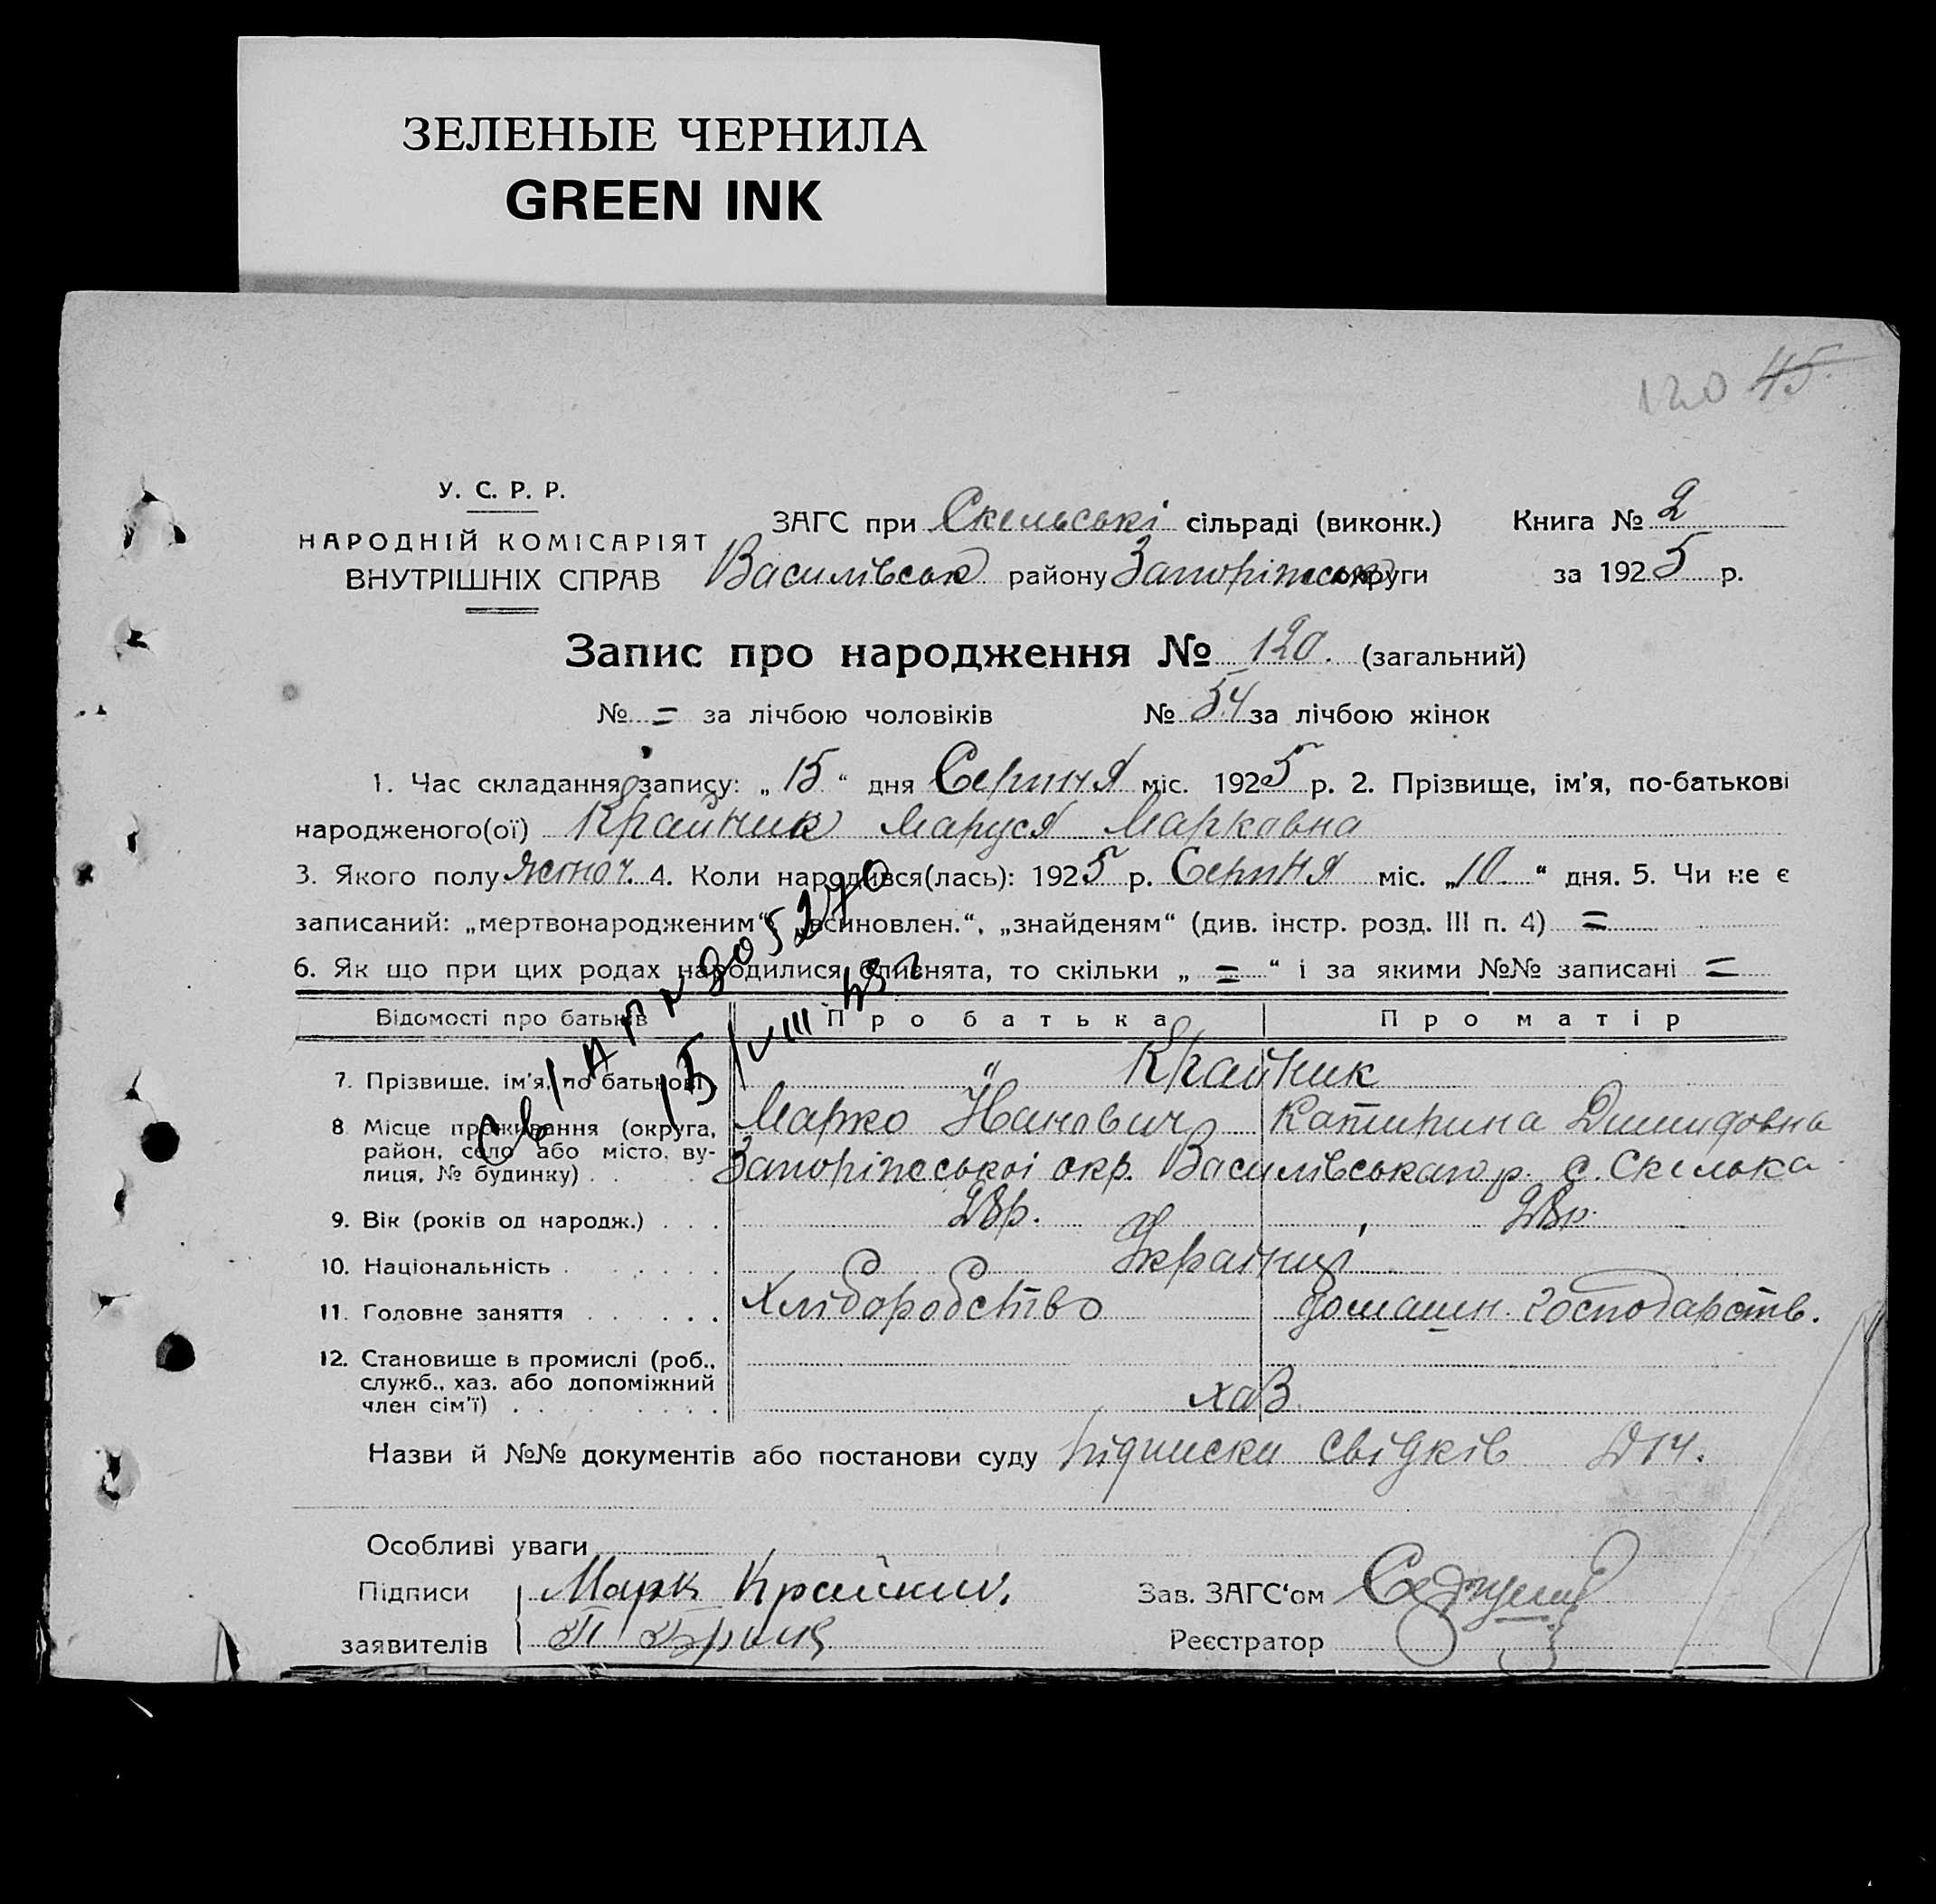 ЗЕЛЕНЫЕ ЧЕРНИЛА
GREEN INK
120 45.
У. С. Р. Р.
НАРОДНІЙ КОМІСАРІЯТ
ВНУТРІШНІХ СПРАВ
ЗАГС при Скельські сільраді (виконк.) Книга № 2
Василівськ району Запоріжськ округи за 1925 р.
Запис про народження № 120. (загальний)
№ = за лічбою чоловіків № 54 за лічбою жінок
1. Час складання запису: „ 15 “ дня Серпня міс. 1925 р. 2. Прізвище, ім'я, по-батькові
народженого(ої) Крайник Маруся Марковна
3. Якого полу жіноч. 4. Коли народився(лась): 1925 р. Серпня міс. „ 10 “ дня. 5. Чи не є
записаний: „мертвонародженим“, „всиновлен.“, „знайденям“ (див. інстр. розд. III п. 4) =
6. Як що при цих родах народилися близнята, то скільки „ = “ і за якими №№ записані =
Відомості про батьків Про батька Про матір
7. Прізвище, ім'я, по батькові " Крайник
Марко Иванович Катирина Димидовна
8 Місце проживання (округа,
район, село або місто, ву-
лиця, № будинку) . . Запоріжської окр. Василівського р. с. Скелька
9. Вік (років од народж.) . . . 28р. 28р.
10. Національність . . . . . . Українці
11. Головне заняття . . . . . . Хліборобство домашн. господарств.
12. Становище в промислі (роб.,
служб., хаз. або допоміжний
член сім'ї) . . . . . . хаз.
15/VIII
Назви й №№ документів або постанови суду підписки свідків №14.
Особливі уваги
Підписи Марк Крайник. Зав. ЗАГС‘ом
заявителів Реєстратор